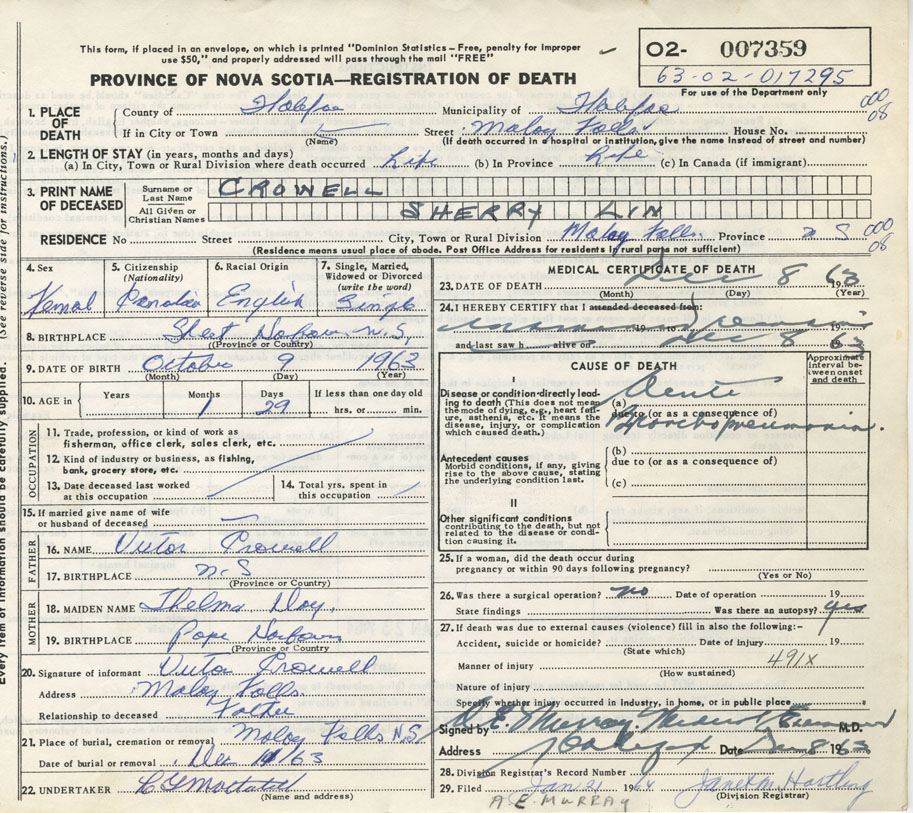 This form, if placed in an envelope, on which is printed "Dominion Statistics - Free, penalty for improper
use $50," and properly addressed will pass through the mail "FREE"
O2- 007359
63-02-017295
For use of the Department only
PROVINCE OF NOVA SCOTIA—REGISTRATION OF DEATH
000
08
1. PLACE OF DEATH
County of Halifax Municipality of Halifax
If in City or Town (Name) Street Malay Falls House No.
(If death occurred in a hospital or institution, give the name instead of street and number)
2. LENGTH OF STAY (in years, months and days)
(a) In City, Town or Rural Division where death occurred Life (b) In Province Life (c) In Canada (if immigrant)
3. PRINT NAME OF DECEASED
Surname or Last Name CROWELL
All Given or Christian Names SHERRY LIN
RESIDENCE No Street City, Town or Rural Division Malay Falls Province N S
000
08
(Residence means usual place of abode. Post Office Address for residents in rural parts not sufficient)
4. Sex Femal
5. Citizenship (Nationality)
6. Racial Origin English
7. Single, Married, Widowed or Divorced (write the word) Single
8. BIRTHPLACE Sheet Harbour N.S,
(Province or Country)
9. DATE OF BIRTH October 9 1963
(Month) (Day) (Year)
10. AGE in Years Months 1 Days 29 If less than one day old hrs. or min.
OCCUPATION
11. Trade, profession, or kind of work as
fisherman, office clerk, sales clerk, etc.
12. Kind of industry or business, as fishing,
bank, grocery store, etc.
13. Date deceased last worked
at this occupation
14. Total yrs. spent in
this occupation
15. If married give name of wife
or husband of deceased
FATHER
16. NAME Victor Crowell
17. BIRTHPLACE N-S
(Province or Country)
MOTHER
18. MAIDEN NAME Thelma
19. BIRTHPLACE Pope Harbour
(Province or Country)
20. Signature of informant Victor Crowell
Address Malay Falls
Relationship to deceased Father
21. Place of burial, cremation or removal Malay Falls N.S.
Date of burial or removal Dec /63
22. UNDERTAKER
(Name and address)
MEDICAL CERTIFICATE OF DEATH
23. DATE OF DEATH Dec 8 1963
(Month) (Day) (Year)
24. I HEREBY CERTIFY that I attended deceased from:
19 to 19
and last saw h alive on Dec 8 1963
CAUSE OF DEATH
Approximate interval between onset and death
I
Disease or condition directly leading to death (This does not mean the mode of dying, e.g., heart failure, asthenia, etc. It means the disease, injury, or complication which caused death.)
(a) Acute
due to (or as a consequence of)
Bronchopneumonia.
Antecedent causes
Morbid conditions, if any, giving rise to the above cause, stating the underlying condition last.
(b)
due to (or as a consequence of)
(c)
II
Other significant conditions
contributing to the death, but not related to the disease or condition causing it.
25. If a woman, did the death occur during
pregnancy or within 90 days following pregnancy?
(Yes or No)
26. Was there a surgical operation? no Date of operation 19
State findings Was there an autopsy? yes
27. If death was due to external causes (violence) fill in also the following:-
Accident, suicide or homicide? Date of injury 19
(State which)
Manner of injury 491X
(How sustained)
Nature of injury
Specify whether injury occurred in Industry, in home, or in public place
Signed by Murray Medical Examiner M.D.
Address Halifax Date Dec 8 1963
28. Division Registrar's Record Number
29. Filed Jan 21 1964 Janet M. Hartling
(Division Registrar)
A E. MURRAY
Every item of information should be carefully supplied. (See reverse side for instructions.)